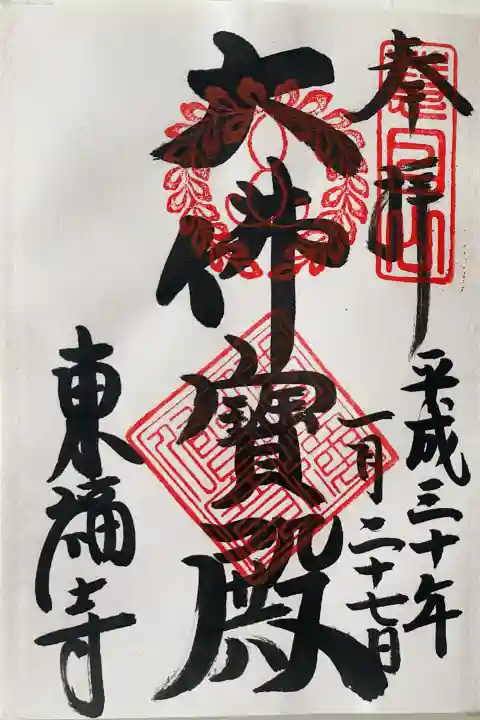 奉拝
平成三十年
一月二十七日
大佛寶殿
東福寺